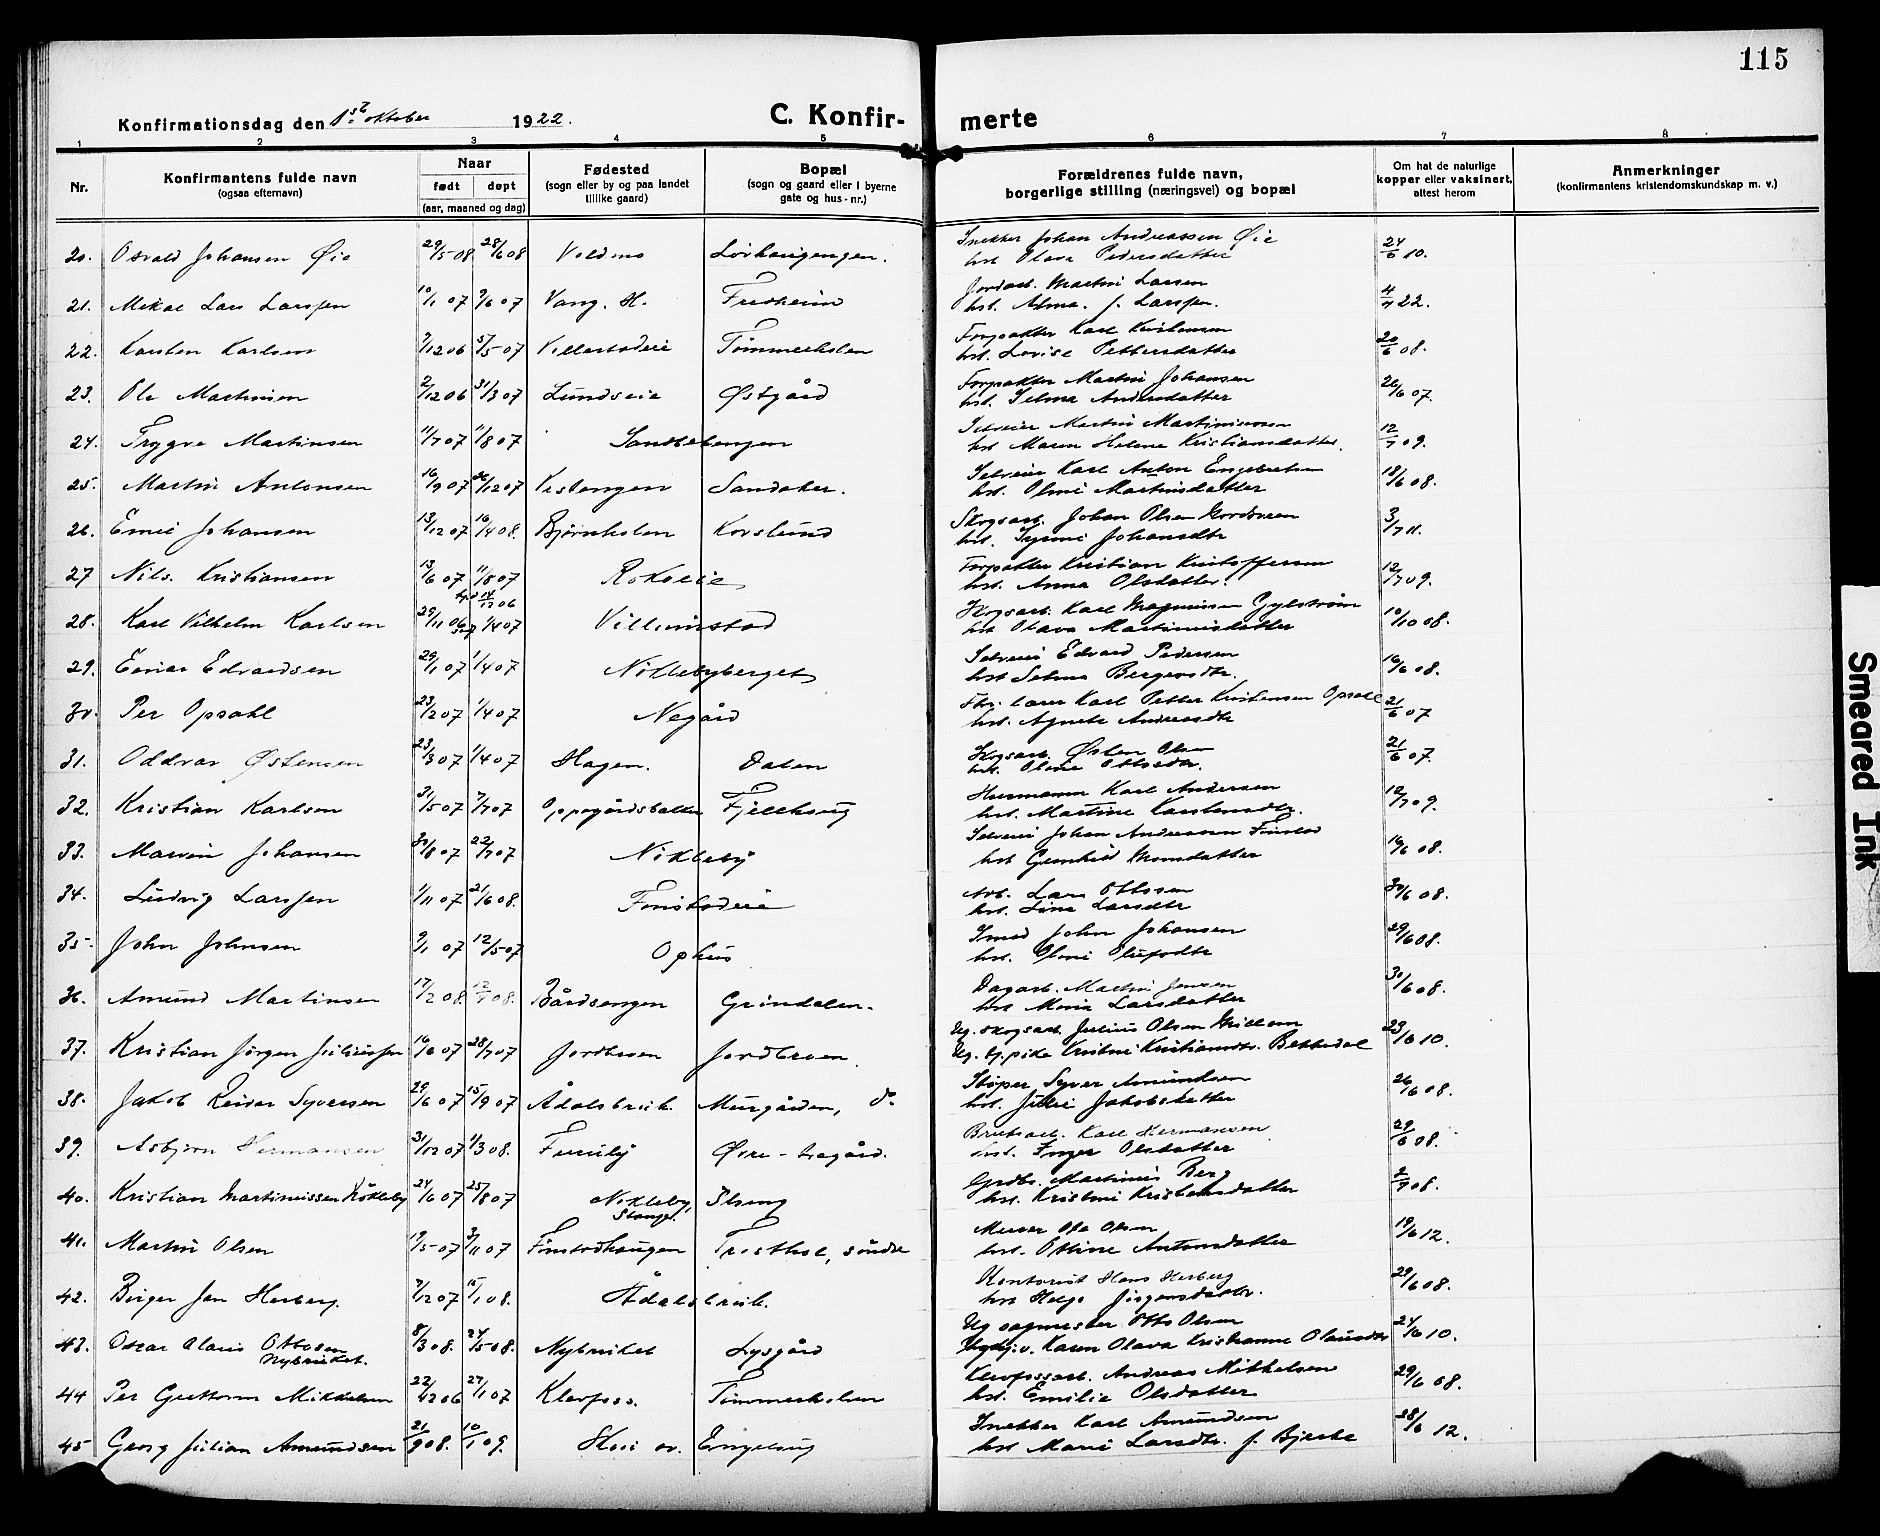 115
Konfirmationsdag den 1st oktober 1922.
C. Konfir- merte
1 2 3 4 5 6 7 8
Nr.
Konfirmantens fulde navn
(ogsaa efternavn)
Naar
født døpt
(aar, maaned og dag)
Fødested
(sogn eller by og paa landet
tillike gaard)
Bopæl
(sogn og gaard eller i byerne
gate og hus-nr.)
Forældrenes fulde navn,
borgerlige stilling (næringsvei) og bopæl
Om hat de naturlige
kopper eller vaksinert,
attest herom
Anmerkninger
(konfirmantens kristendomskundskap m. v.)
20. Osvald Johansen Øie 29/5-08 28/6 08 Voldmo Snekker Johan Andreassen Øie 24/6 10.
hst. Olava Pedersdatter
21. Mikal Lars Larssen 10/1 07 9/6 07 Vang. H. Fredheim Jordarb. Martin Larsen 4/7 22.
hst. Alma. J. Larssen.
22. Karsten Karlsen 7/12 06 5/5-07 Tømmerholen Forpakter Karl Kristensen 20/6 08.
hst. Lovise Pettersdatter
23. Ole Martinsen 2/12 06 31/3 07 Lundseie Østgård Forpakter Martin Johansen 26/6 07.
hst. Selma Andersdatter
24. Trygve Martinsen 11/7 07 11/8 07 Selveier Martin Martinsen 12/7 09.
hst. Maren Helene Kristiansdatter.
25. Martin Antonsen 16/9 07 26/12 07 Vestengen Sandaker. Selveier Karl Anton Engebretsen 18/6 08.
hst. Oline Martinsdatter
26. Emil Johansen 13/12 07 16/4 08. Bjørnholen Korslund Skogsarb. Johan Olsen Nordsveen 3/7 11.
hst. Johansdtr
27 Nils. Kristiansen 13/6 07 11/8 07 Rokoeie Forpakter Kristian Kristoffersen 12/7 09.
hst. Anna Olsdatter.
28. Karl Vilhelm Karlsen 29/11 06 14/12 06 1/4 07 Villumstad Skogsarb. Karl Magnussen Gylstrøm 10/10 08.
hst. Olava Martinusdatter
29. Einar Edvardsen 29/1 07 1/4 07 Niklebyberget Selveier Edvard Pedersen 16/6 08.
hst. Selma Bergersdtr.
30. Per Opsahl 23/2 07 1/4 07 Negård lærer Karl Petter Kristensen Opsahl 21/6 07
hst. Agnete Andreasdtr
31. Oddvar Østensen 23/3 07 1/4 07 Hagen. Dalen Skogsarb. Østen Olsen 21/6 07.
hst. Oline Ottosdtr.
32. Kristian Karlsen 31/5 07 7/7 07 Oppegårdsbakken Fjellhaug Husmann Karl Andersen 12/7 09.
hst. Martine Karstensdtr.
33. Marvin Johansen 30/8 07 22/7 07 Nikleby Selveier Johan Andreassen Finstad 16/6 08.
hst Gunhild Monsdatter
34. Ludvig Larssen 1/11 07 21/6 08. Finstadeie Arb. Lars Ottosen 30/6 08.
hst. Lina Larsdtr
35. John Johnsen 9/1 07 12/5-07 Ophus Smed John Johansen 29/6 08.
hst. Oline Olufsdtr
36. Amund Martinsen 17/2 08. 12/7 08. Bårdsengen Grindalen. Dagarb. Martin Jensen 30/6 08.
hst Maria Larsdatter
37. Kristian Jørgen Juliussen 16/6 07 28/7 07 Jordbroen Jordbroen Ug. skogsarb. Julius Olsen 23/6 10.
Ug. tj.pike Kristine Kristiansdtr. Bekkedal
38. Jakob Reidar Syversen 29/6 07 15/9 07 Ådalsbruk. Murgården, do Støper Syver Amundsen 26/6 08.
hst. Julie Jakobsdatter
39. Asbjørn Hermansen 31/12 07 1/3 08. Furuly Øvre-hagård. Bruksarb. Karl Hermansen 29/6 08.
hst. Inger Olsdatter
40. Kristian Martiniussen Nikleby 24/6 07 25/8 07 Nikleby, Stange. Ilseng Grdbr. Martinius Berg 2/7 08.
hst. Kristine Kristensdatter
41. Martin Olsen 19/5-07 3/11 07 Finstadhaugen søndre Murer Ole Olsen 19/6 12.
hst. Ottine Antonsdatter
42. Birger Jan Herberg. 7/12 07 15/1 08. Ådalsbruk. Kontorist Hans Herberg 29/6 08.
hst Helga Jørgensdatter.
43. Oscar Olaus Ottosen Nybruket. 8/3 08. 24/5-08. Nybruket Lysgård Ug sagmester Otto Olsen 24/6 10.
Karen Olava Kristianne Olausdtr
44 Per Guttorm Mikkelsen 22/12 06 27/1 07 Klevfoss. Tømmerholen Klevfossarb. Andreas Mikkelsen 29/6 08.
hst. Emilie Olsdatter
45 Georg Julian Amundsen 21/9 08. 10/1 09. Skei ov. Engelaug Snekker Karl Amundsen 28/6 12.
hst Marie Larsdtr. f. Bjerke
Smeared Ink